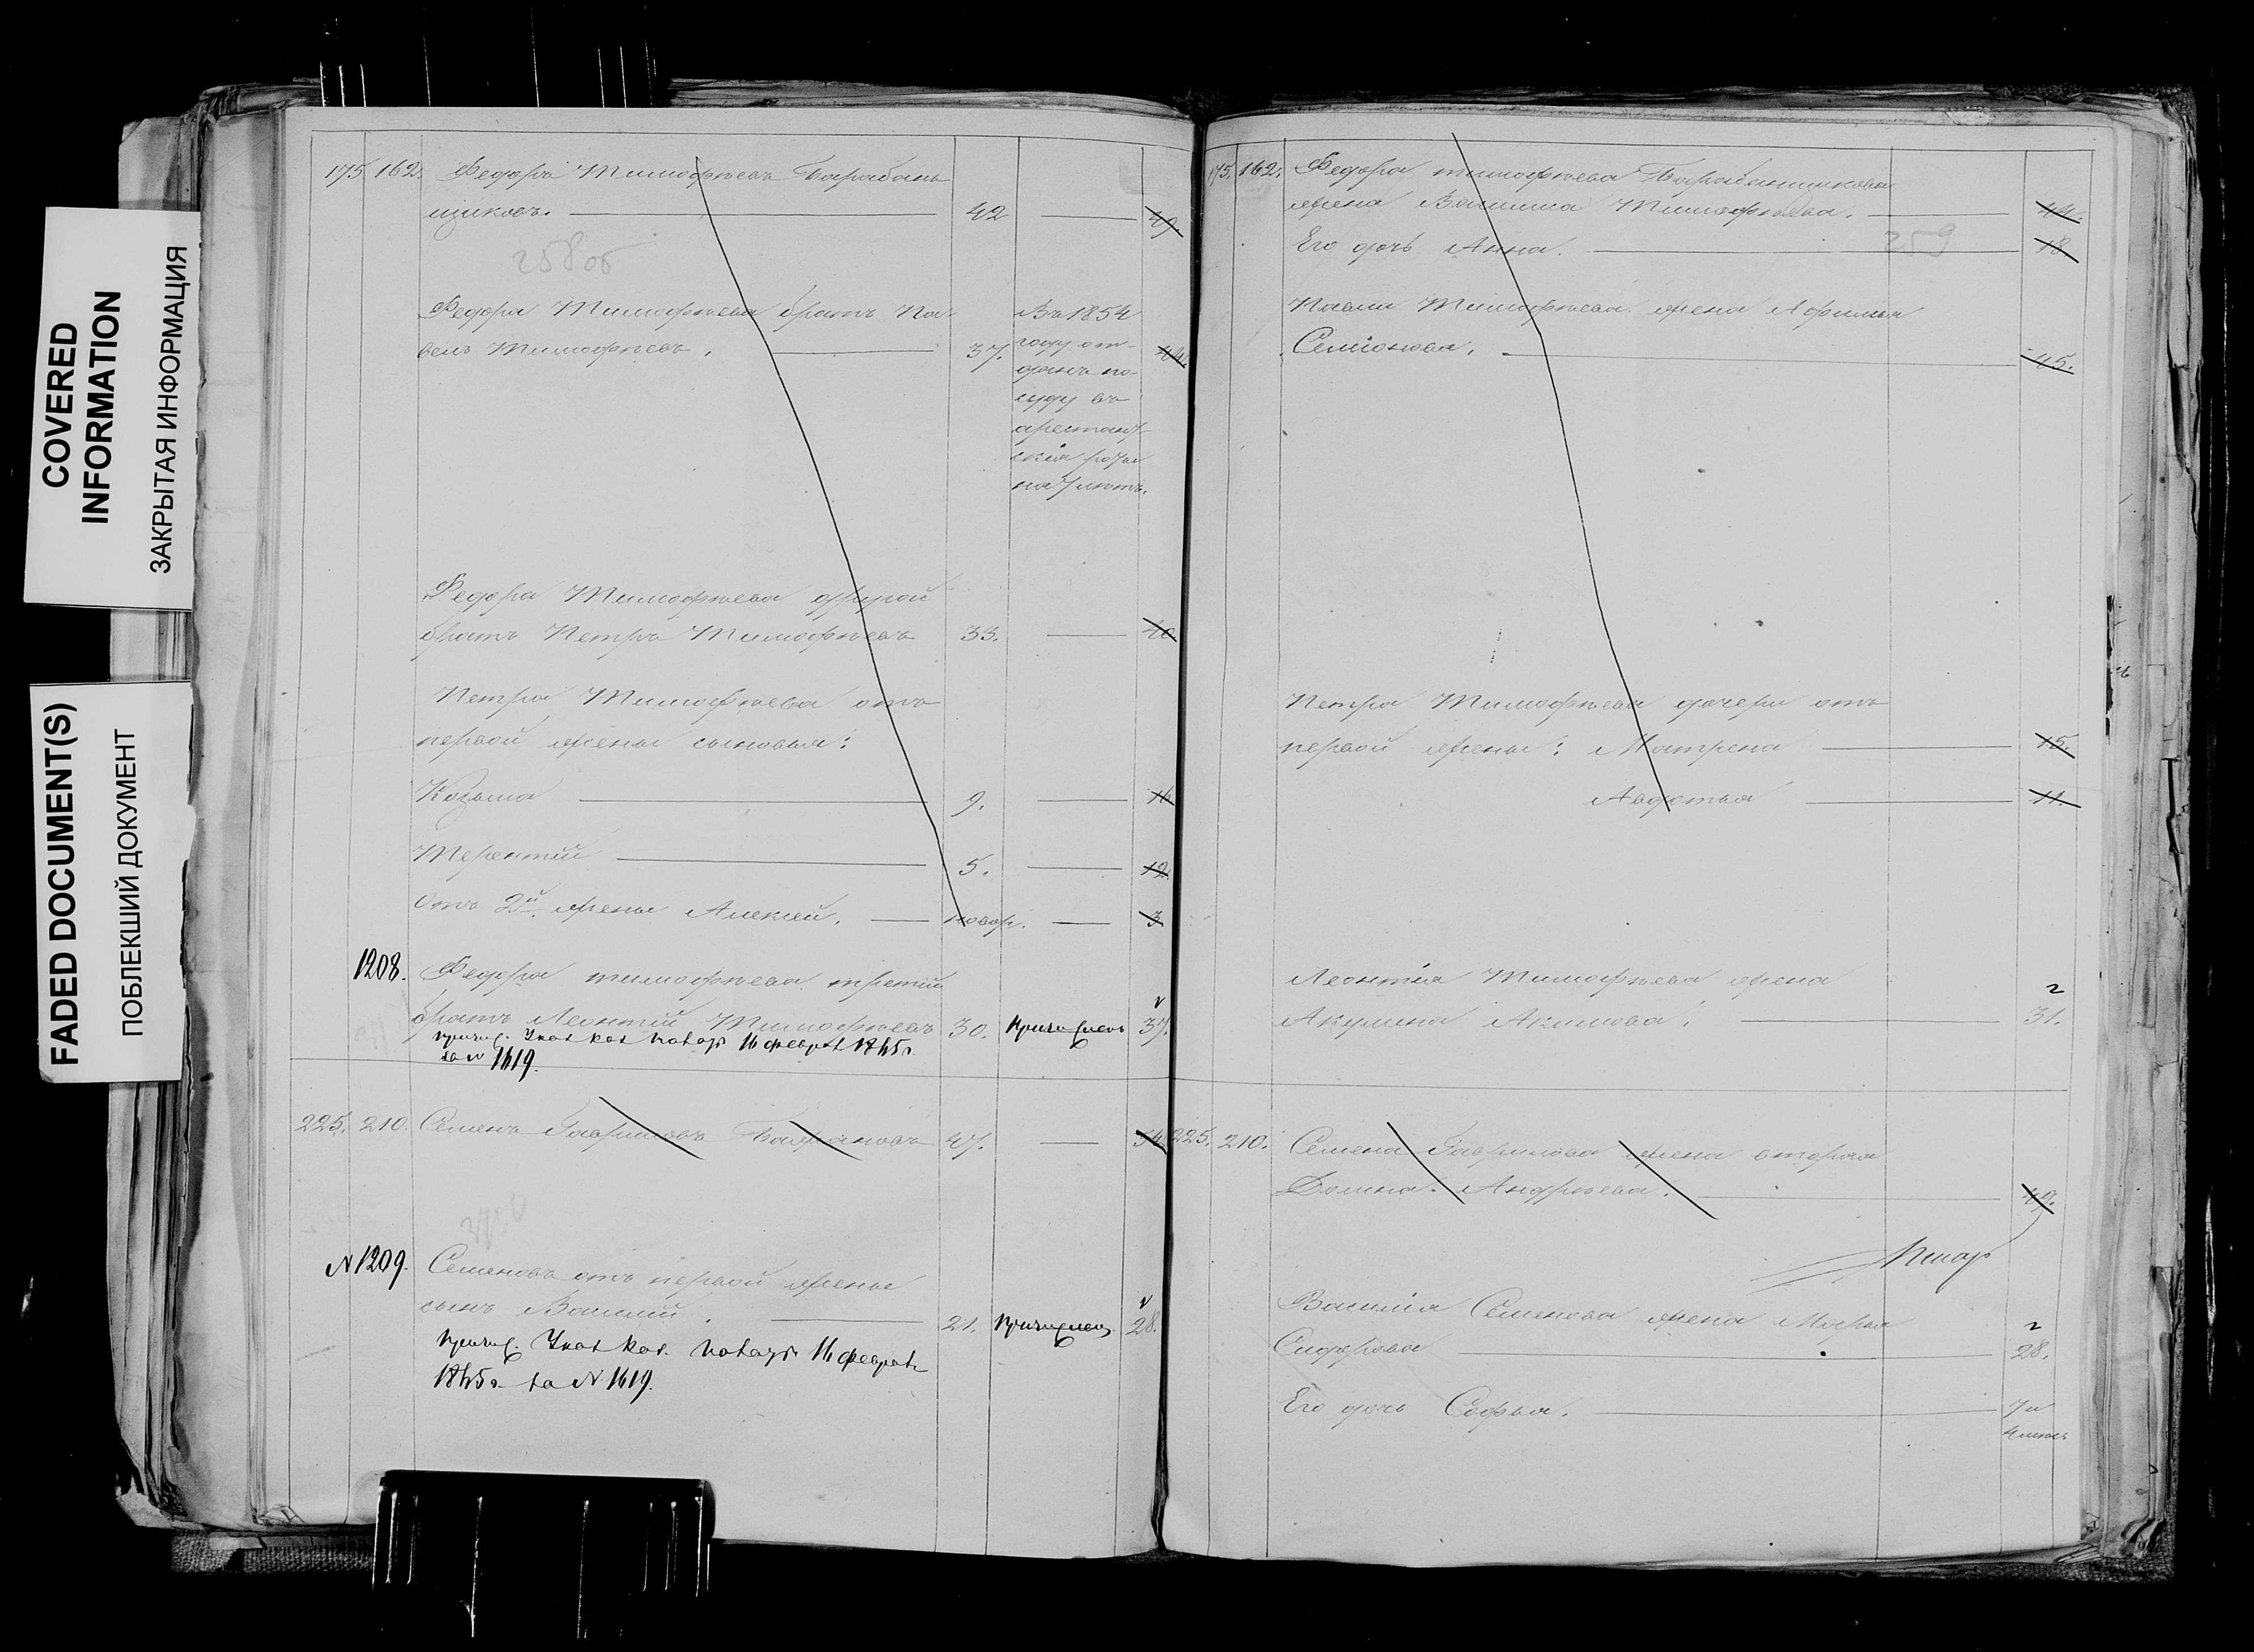 COVERED
INFORMATION
ЗАКРЫТАЯ ИНФОРМАЦИЯ
FADED DOCUMENT(S)
ПОБЛЕКШИЙ ДОКУМЕНТ
175 162. Федоръ Тимофѣевъ Барабань
щиковъ. 42 49.
258 об
Федора Тимофѣева братъ Па
велъ Тимофѣевъ. 37. 44.
Въ 1854
году от-
данъ по
суду въ
арестант-
скія роты
на 7 лѣтъ.
Федора Тимофѣева другой
братъ Петръ Тимофѣевъ 33. 40.
Петра Тимофѣева отъ
первой жены сыновья:
Козьма 9. 16
Терентій 5. 12.
Отъ 2й жены Алексей. новор. 3
1208. Федора тимофѣева третій
братъ Леонтій Тимофѣевъ 30. 37.
16 феврал
за N 1619.
225. 210. Семенъ Гавриловъ 47. 54.
N 1209. Семеновъ отъ первой жены
сынъ Василій. 21. 28.
16 феврал
за N 1619.
175. 162. Федора тимофѣева Барабанщикова
жена Василиса Тимофѣева. 44.
Его дочь Анна. 18
259
Павла Тимофѣева жена Афимья
Семіонова. 45.
Петра Тимофѣева дочери отъ
первой жены: Матрена 15.
Авдотья 11.
Леонтія Тимофѣева жена
Акулина Акимова. 31.
225. 210. Семена Гаврилова жена вторая
Домна Андрѣева. 49.
Василія Семенова жена Марья
Сидорова 28.
Его дочь Софья. 7 и